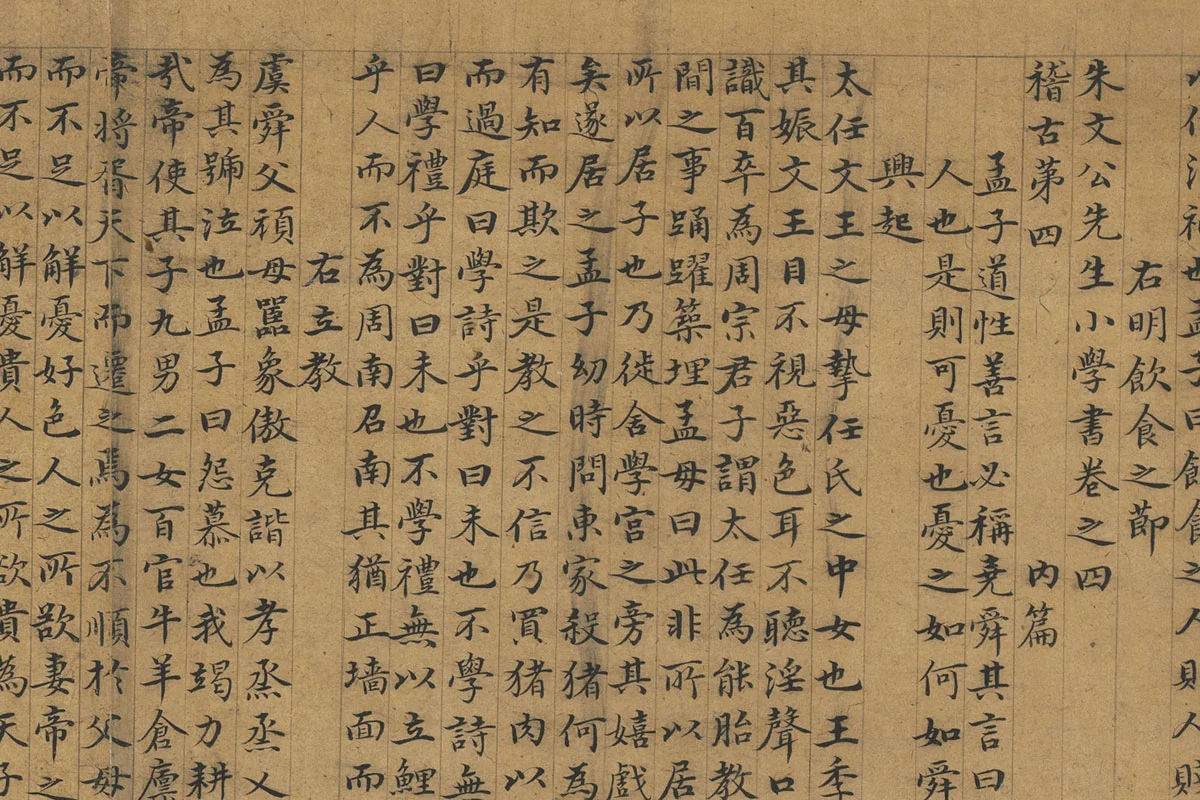 也孟子曰飲食之人則人賤
右明飲食之節
朱文公先生小學書卷之四
稽古第四 內篇
孟子道性善言必稱堯舜其言曰
人也是則可憂也憂之如何如舜
興起
太任文王之母摯任氏之中女也王季
其娠文王目不視惡色耳不聽淫聲口
識百卒為周宗君子謂太任為能胎教
間之事踊躍築埋孟母曰此非所以居
所以居子也乃徙舍學宮之旁其嬉戲
矣遂居之孟子幼時問東家殺猪何為
有知而欺之是教之不信乃買猪肉以
而過庭曰學詩乎對曰未也不學詩無
曰學禮乎對曰未也不學禮無以立鯉
乎人而不為周南召南其猶正墻面而
右立教
虞舜父頑母嚚象傲克諧以孝烝烝乂
為其號泣也孟子曰怨慕也我竭力耕
哉帝使其子九男二女百官牛羊倉廩
帝將胥天下而遷之焉為不順於父母
而不足以解憂好色人之所欲妻帝之
而不足以解憂貴人之所欲貴為天子